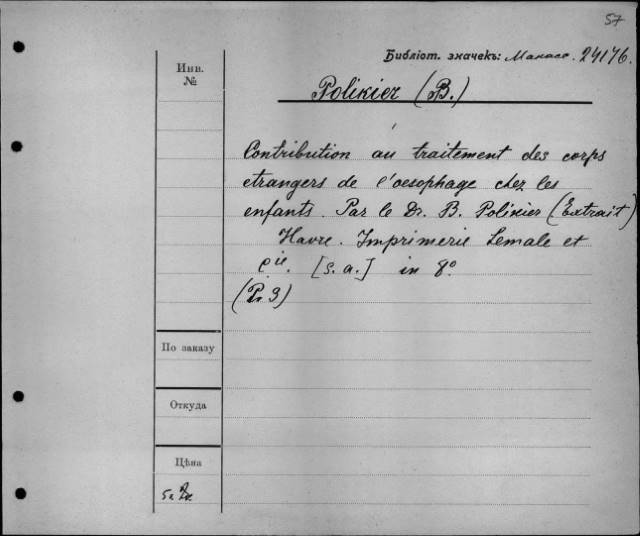 57
Библіот. значекъ: Манасе. 24176.
Инв.
№
Polikier (B.)
Contribution au traitement des corps
etrangers de l'oesophage chez les
enfants. Par le Dr. B. Polikier (Extrait)
Havre. Imprimerie Lemale et
Cie. [S. a.] in 8º
По заказу
Откуда
Цѣна